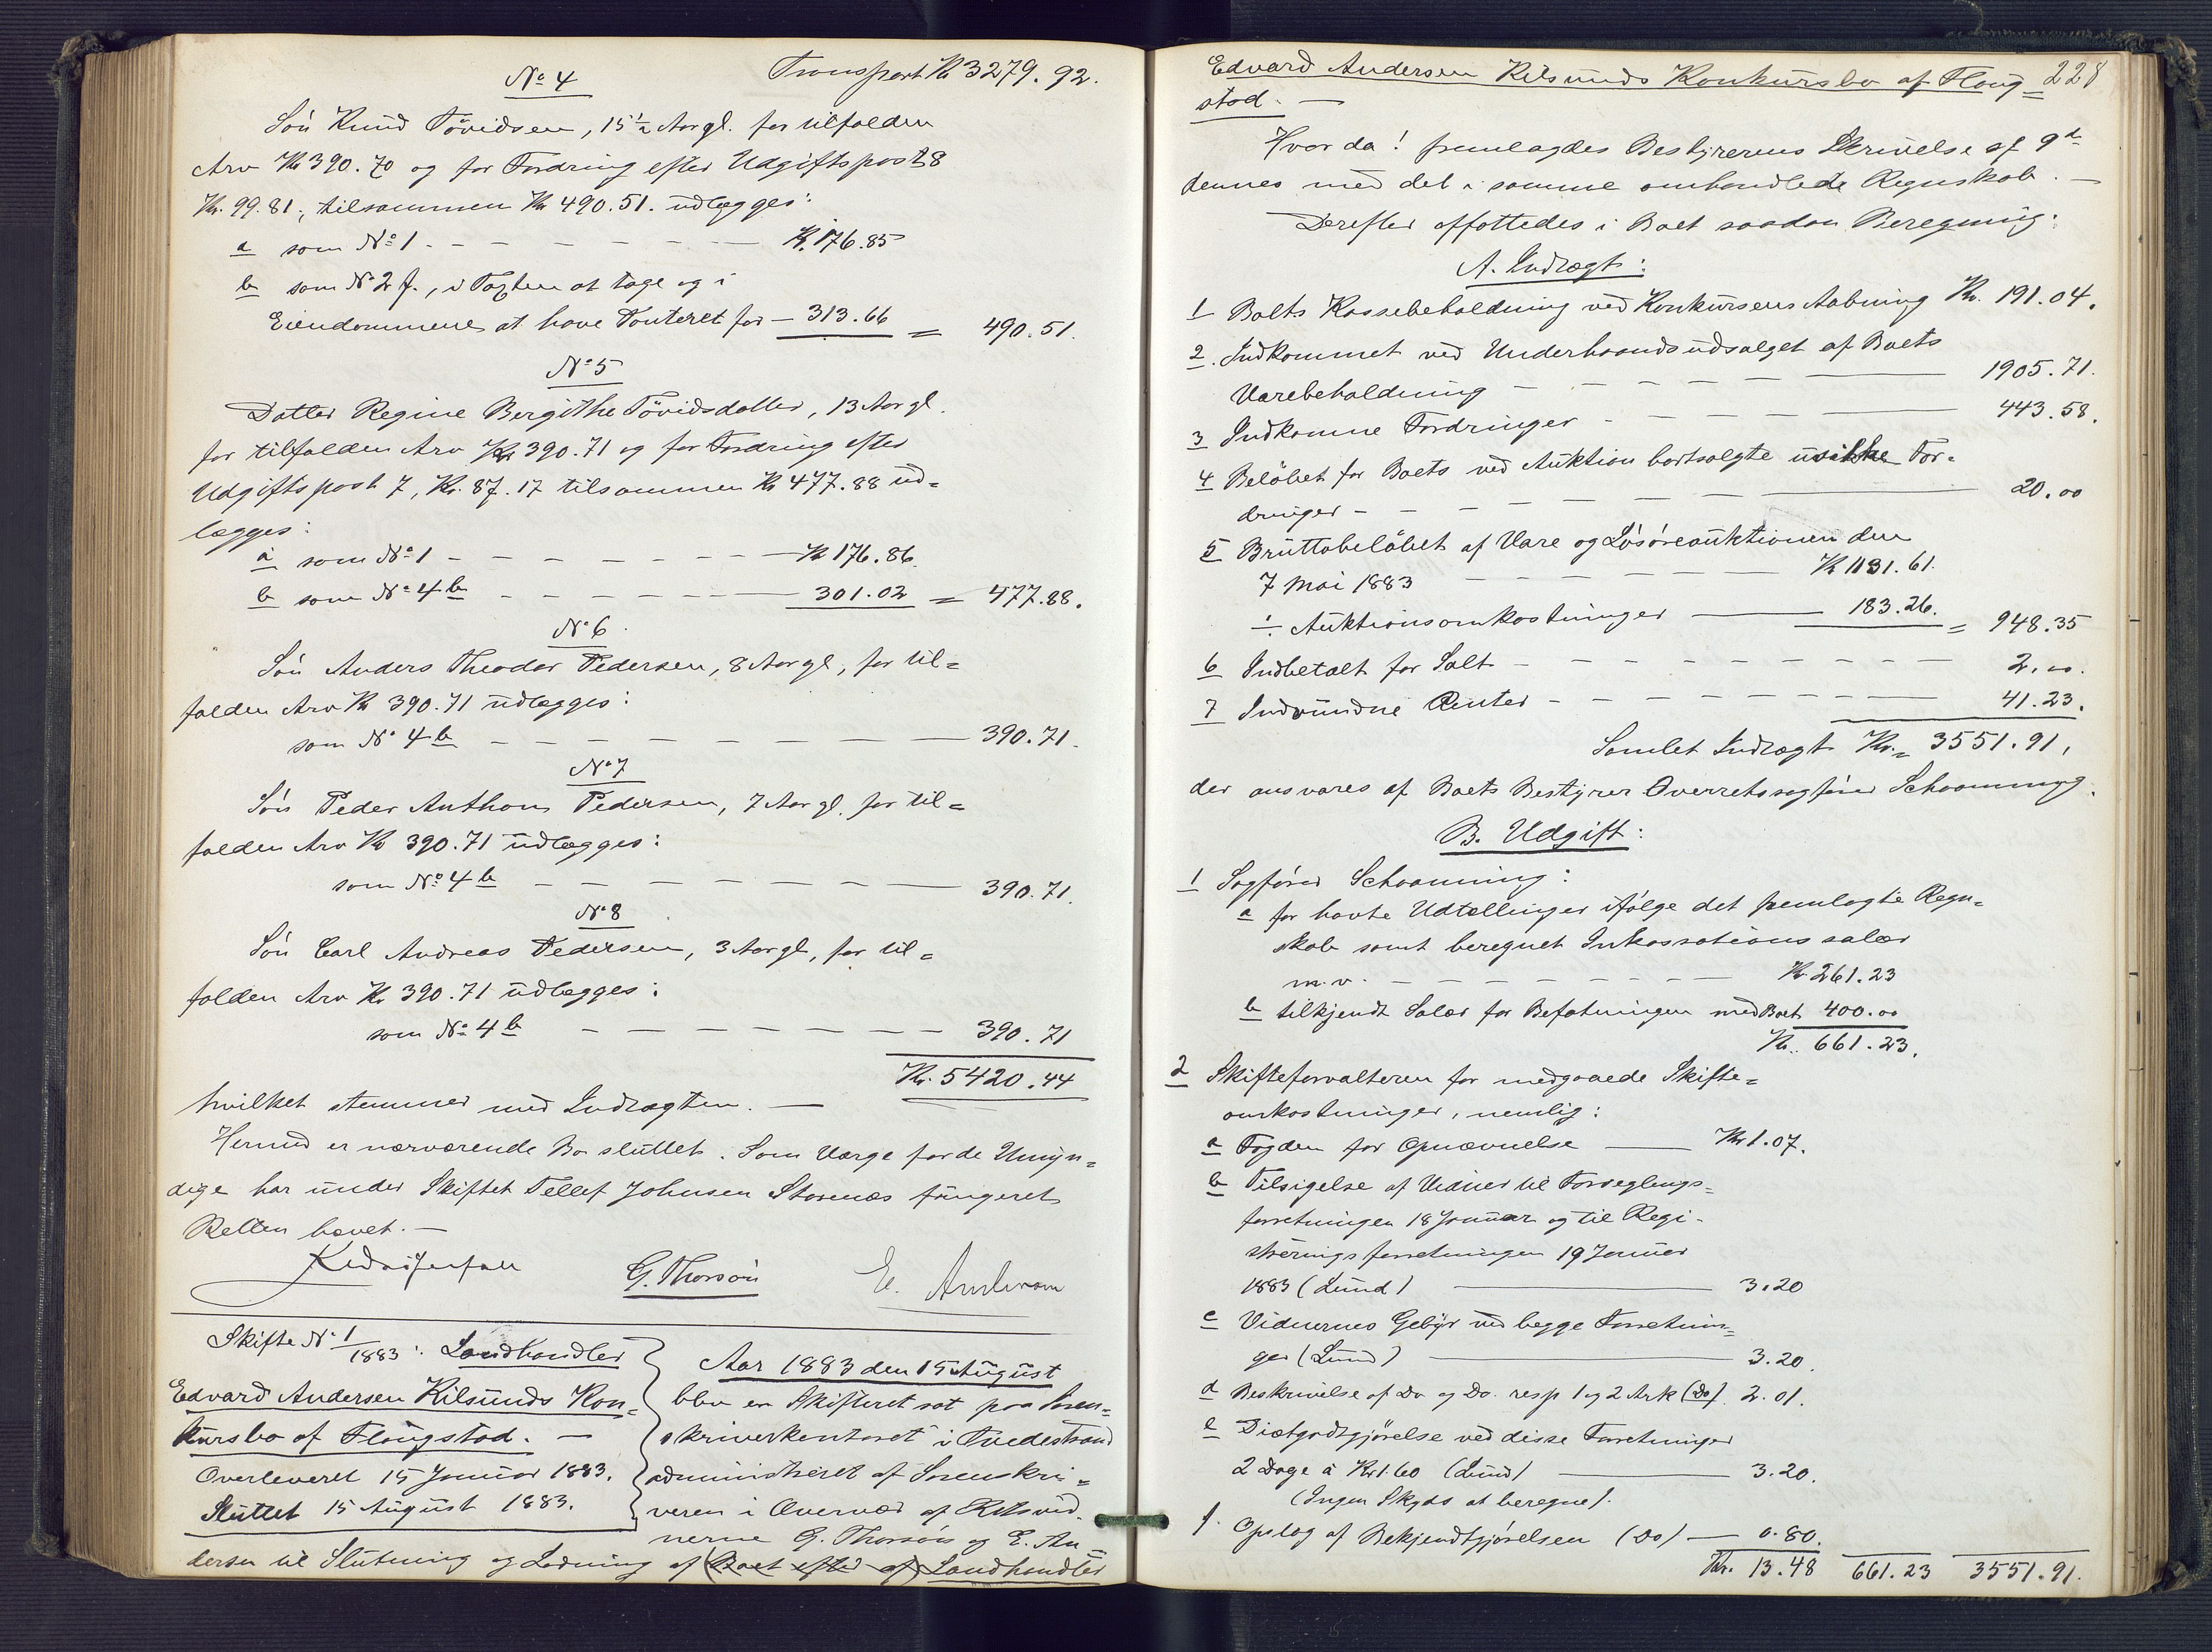 Transport Kr 3279.92.
No 4
Søn Knud Tøvidsen, 15½ Aar gl. for tilfalden
Arv Kr 390.70 og for Fordring efter Udgiftspost 8
Kr. 99.81, tilsammen Kr 490.51. udlægges:
a som No 1 - - - - - - - Kr. 176.85
b som No 2 f., i Taxten at tage og i
Eiendommene at have Panteret for - 313.66 = 490.51.
No 5
Datter Regine Bergithe Tøvidsdatter, 13 Aar gl.
for tilfalden Arv Kr 390.71 og for Fordring efter
Udgiftspost 7, Kr. 87.17 tilsammen Kr 477.88 ud=
lægges:
a som No 1 - - - - - - - Kr 176.86.
b som No 4 b - - - - - - 301.02 = 477.88.
No 6.
Søn Anders Theodor Pedersen, 8 Aar gl, for til=
falden Arv Kr 390.71 udlægges:
som No 4 b - - - - - - - 390.71.
No 7
Søn Peder Anthon Pedersen, 7 Aar gl. for til=
falden Arv Kr 390.71 udlægges:
som No 4 b - - - - - - - 390.71.
No 8
Søn Carl Andreas Pedersen, 3 Aar gl, for til=
falden Arv Kr 390.71 udlægges:
som No 4 b - - - - - - - 390.71
Kr. 5420.44
hvilket stemmer med Indtægten. —
Hermed er nærværende Bo sluttet. Som Værge for de Umyn=
dige har under Skiftet Tellef Johnsen Storenæs fungeret
Retten hævet. —
G. Thorsøn E. Andersen
Skifte No 1/1883: Landhandler
Edvard Andersen Kilsunds Kon=
kursbo af Flougstad. —
Overleveret 15 Januar 1883.
Sluttet 15 August 1883.
Aar 1883 den 15 August
blev en Skifteret sat paa Soren=
skriverkontoret i Tvedestrand
administreret af Sorenskri=
veren i Overvær af Retsvid=
nerne G. Thorsøn og E. An=
dersen til Slutning og Lodning af (Boet efter af) Landhandler
Edvard Andersen Kilsunds Konkursbo af Floug= 228
stad. —
Hvorda! fremlagdes Bestyrerens Skrivelse af 9d
dennes med det i samme omhandlede Regnskab. —
Derefter affattedes i Boet saadan Beregning:
A. Indtægt:
1 Boets Kassebeholdning ved Konkursens Aabning Kr. 191.04.
2. Indkommet ved Underhaandsudsalget af Boets
Varebeholdning - - - - - 1905.71.
3 Indkomne Fordringer - - - - 443.58.
4 Beløbet for Boets ved Auktion bortsolgte usikkre For=
dringer - - - - - - 20.00
5 Bruttobeløbet af Vare og Løsøreauktionen den
7 Mai 1883 - - - - - - Kr 1131.61.
÷ Auktionsomkostninger — 183.26. = 948.35
6 Indbetalt for Salt - - - - - - 2.00.
7 Indvundne Renter - - - - - - 41.23.
Samlet Indtægt Kr. = 3551.91,
der ansvares af Boets Bestyrer Overretssagfører Schoanning.
B. Udgift:
1 Sagfører Schoanning:
a for havte Udtællinger ifølge det fremlagte Regn=
skab samt beregnet Inkassationssalær
m.v. - - - - - - Kr. 261.23
b tilkjendt Salær for Befatningen med Boet 400.00
Kr. 661.23.
2 Skifteforvalteren for medgaaede Skifte=
omkostninger, nemlig:
a Fogden for Opnævnelse — Kr 1.07.
b Tilsigelse af Vidner til Forseglings=
forretningen 18 Januar og til Regi=
streringsforretningen 19 Januar
1883 (Lund) — 3.20
c Vidnernes Gebyr ved begge Forretnin=
ger (Lund) — 3.20.
d Beskrivelse af Do og Do. resp 1 og 2 Ark (Do). 2.01.
e Diætgodtgjørelse ved disse Forretninger
2 Dage à Kr 1.60 (Lund) — 3.20.
(Ingen Skyds at beregne).
f. Opslag af Bekjendtgjørelsen (Do) — 0.80.
Kr. 13.48 661.23 3551.91.